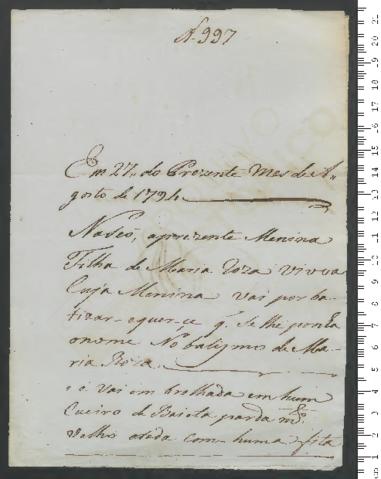 N. 997
Em 27,, do Prezente Mes de A,,
gosto de 1794
Naseo, aprezente Menina
Filha de Maria Roza Viuva
Cuja Menina Vai por ba
tizar-equer-çe q. Se lhe ponha
onome No batizmo de Ma
ria Roza
e Vai em brolhada em hum
Cueiro de Baieta parda m.to
Velho atada com huma fita